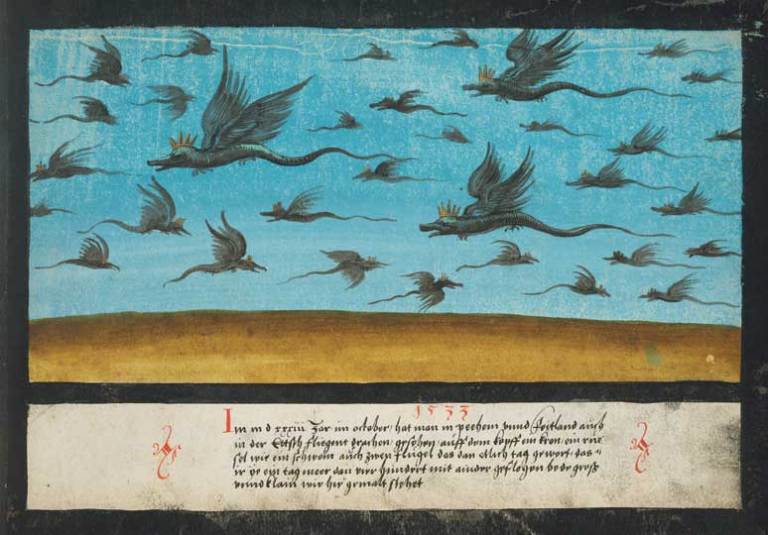 1533
Im m d xxxiii Jar im october / hat man in peehem vnnd Foitland auch
in der  fliegent drachen gesehen / auff dem kopff ein kron, ein rue
sel wie ein schwein auch zwen flügel das dan etlich tag gewert, das
ir ye ein tag meer dan vier hundert mit ainder geflogen bede groß
vnnd klain wie hie gemalt stehet